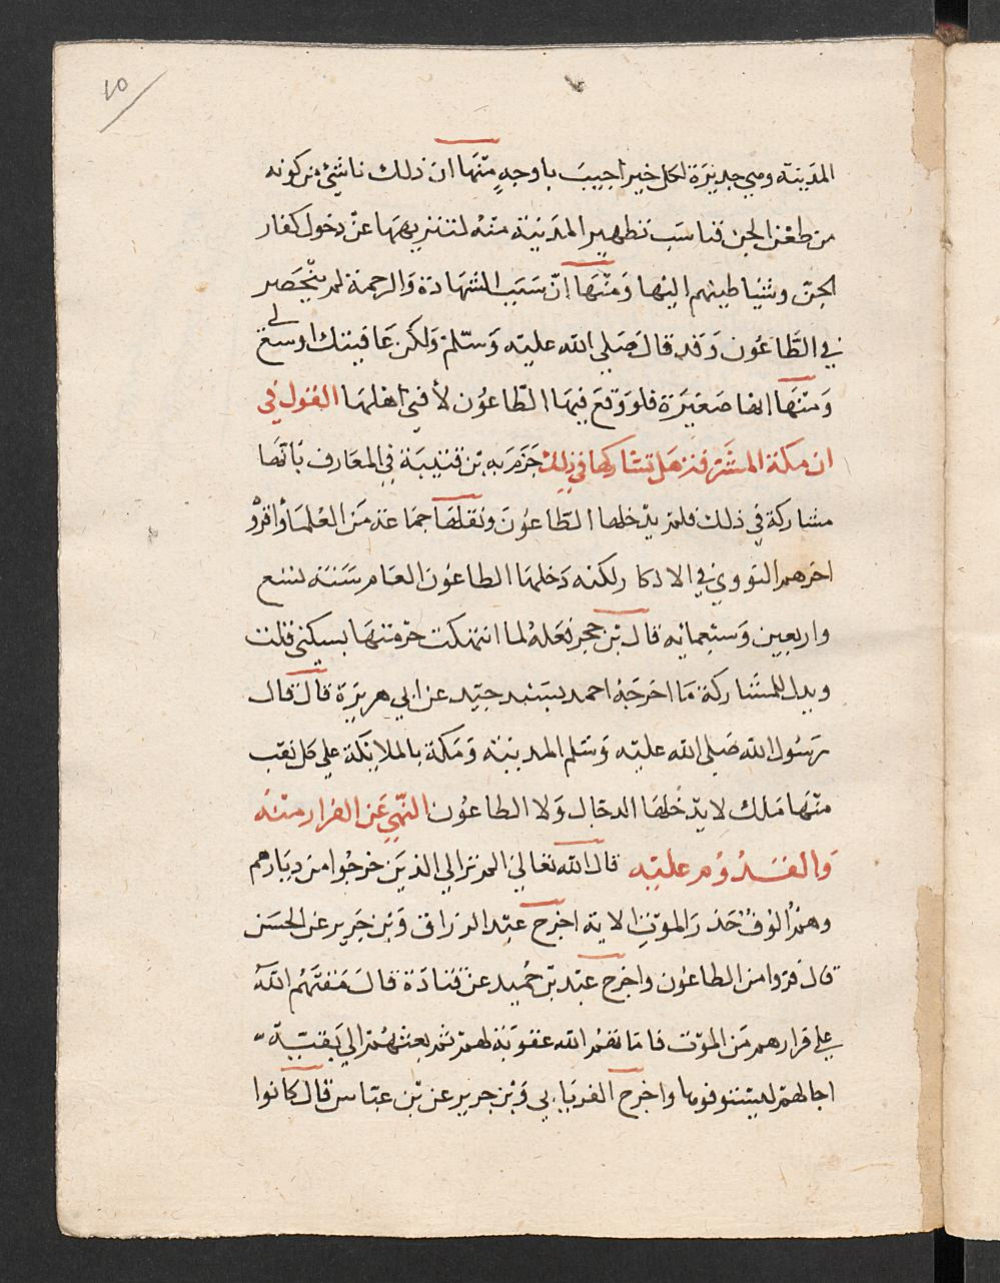 ١٥
المدينة وهي جديرة لكل خير اجيب باوجه منها ان ذلك ناشئ من كونه
من طعن الجن فناسب تطهير المدينة منه لتنزيهها عن دخول كفار
الجن وشياطينهم اليها ومنها ان سبب الشهادة والرحمة لم ينحصر
في الطاعون وقد قال صلي الله عليه وسلم ولكن عافيتك اوسع لي
ومنها انها صغيرة فلو وقع فيها الطاعون لأفني اهلها القول في
ان مكة المشرفة هل تشاركها في ذلك جزم به بن قتيبة في المعارف بانها
مشاركة في ذلك فلم يدخلها الطاعون ونقلها جماعة من العلماء واقروْ
اخرهم النووي في الاذكار لكنه دخلها الطاعون العام سنة تسع
واربعين وسبعمائه قال بن حجر لعله لما انتهكت حرمتها بسكني قلت
ويدل للمشاركة ما اخرجه احمد بسند جيد عن ابي هريرة قال قال
رسول الله صلي الله عليه وسلم المدينة ومكة بالملائكة علي كل نقب
منها ملك لا يدخلها الدجال ولا الطاعون النهي عن الفرار منه
والقدوم عليه قال الله تعالي الم تر الي الذين خرجوا من ديارهم
وهم الوف حذر الموت الاية اخرج عبد الرزاق وبن جرير عن الحسن
قال فروا من الطاعون واخرج عبد بن حميد عن قتادة قال مقتهم الله
علي فرارهم من الموت فاماتهم الله عقوبة لهم ثم بعثهم الي بقية
اجالهم ليستوفوها واخرج الفريابي وبن جرير عن بن عباس قال كانوا